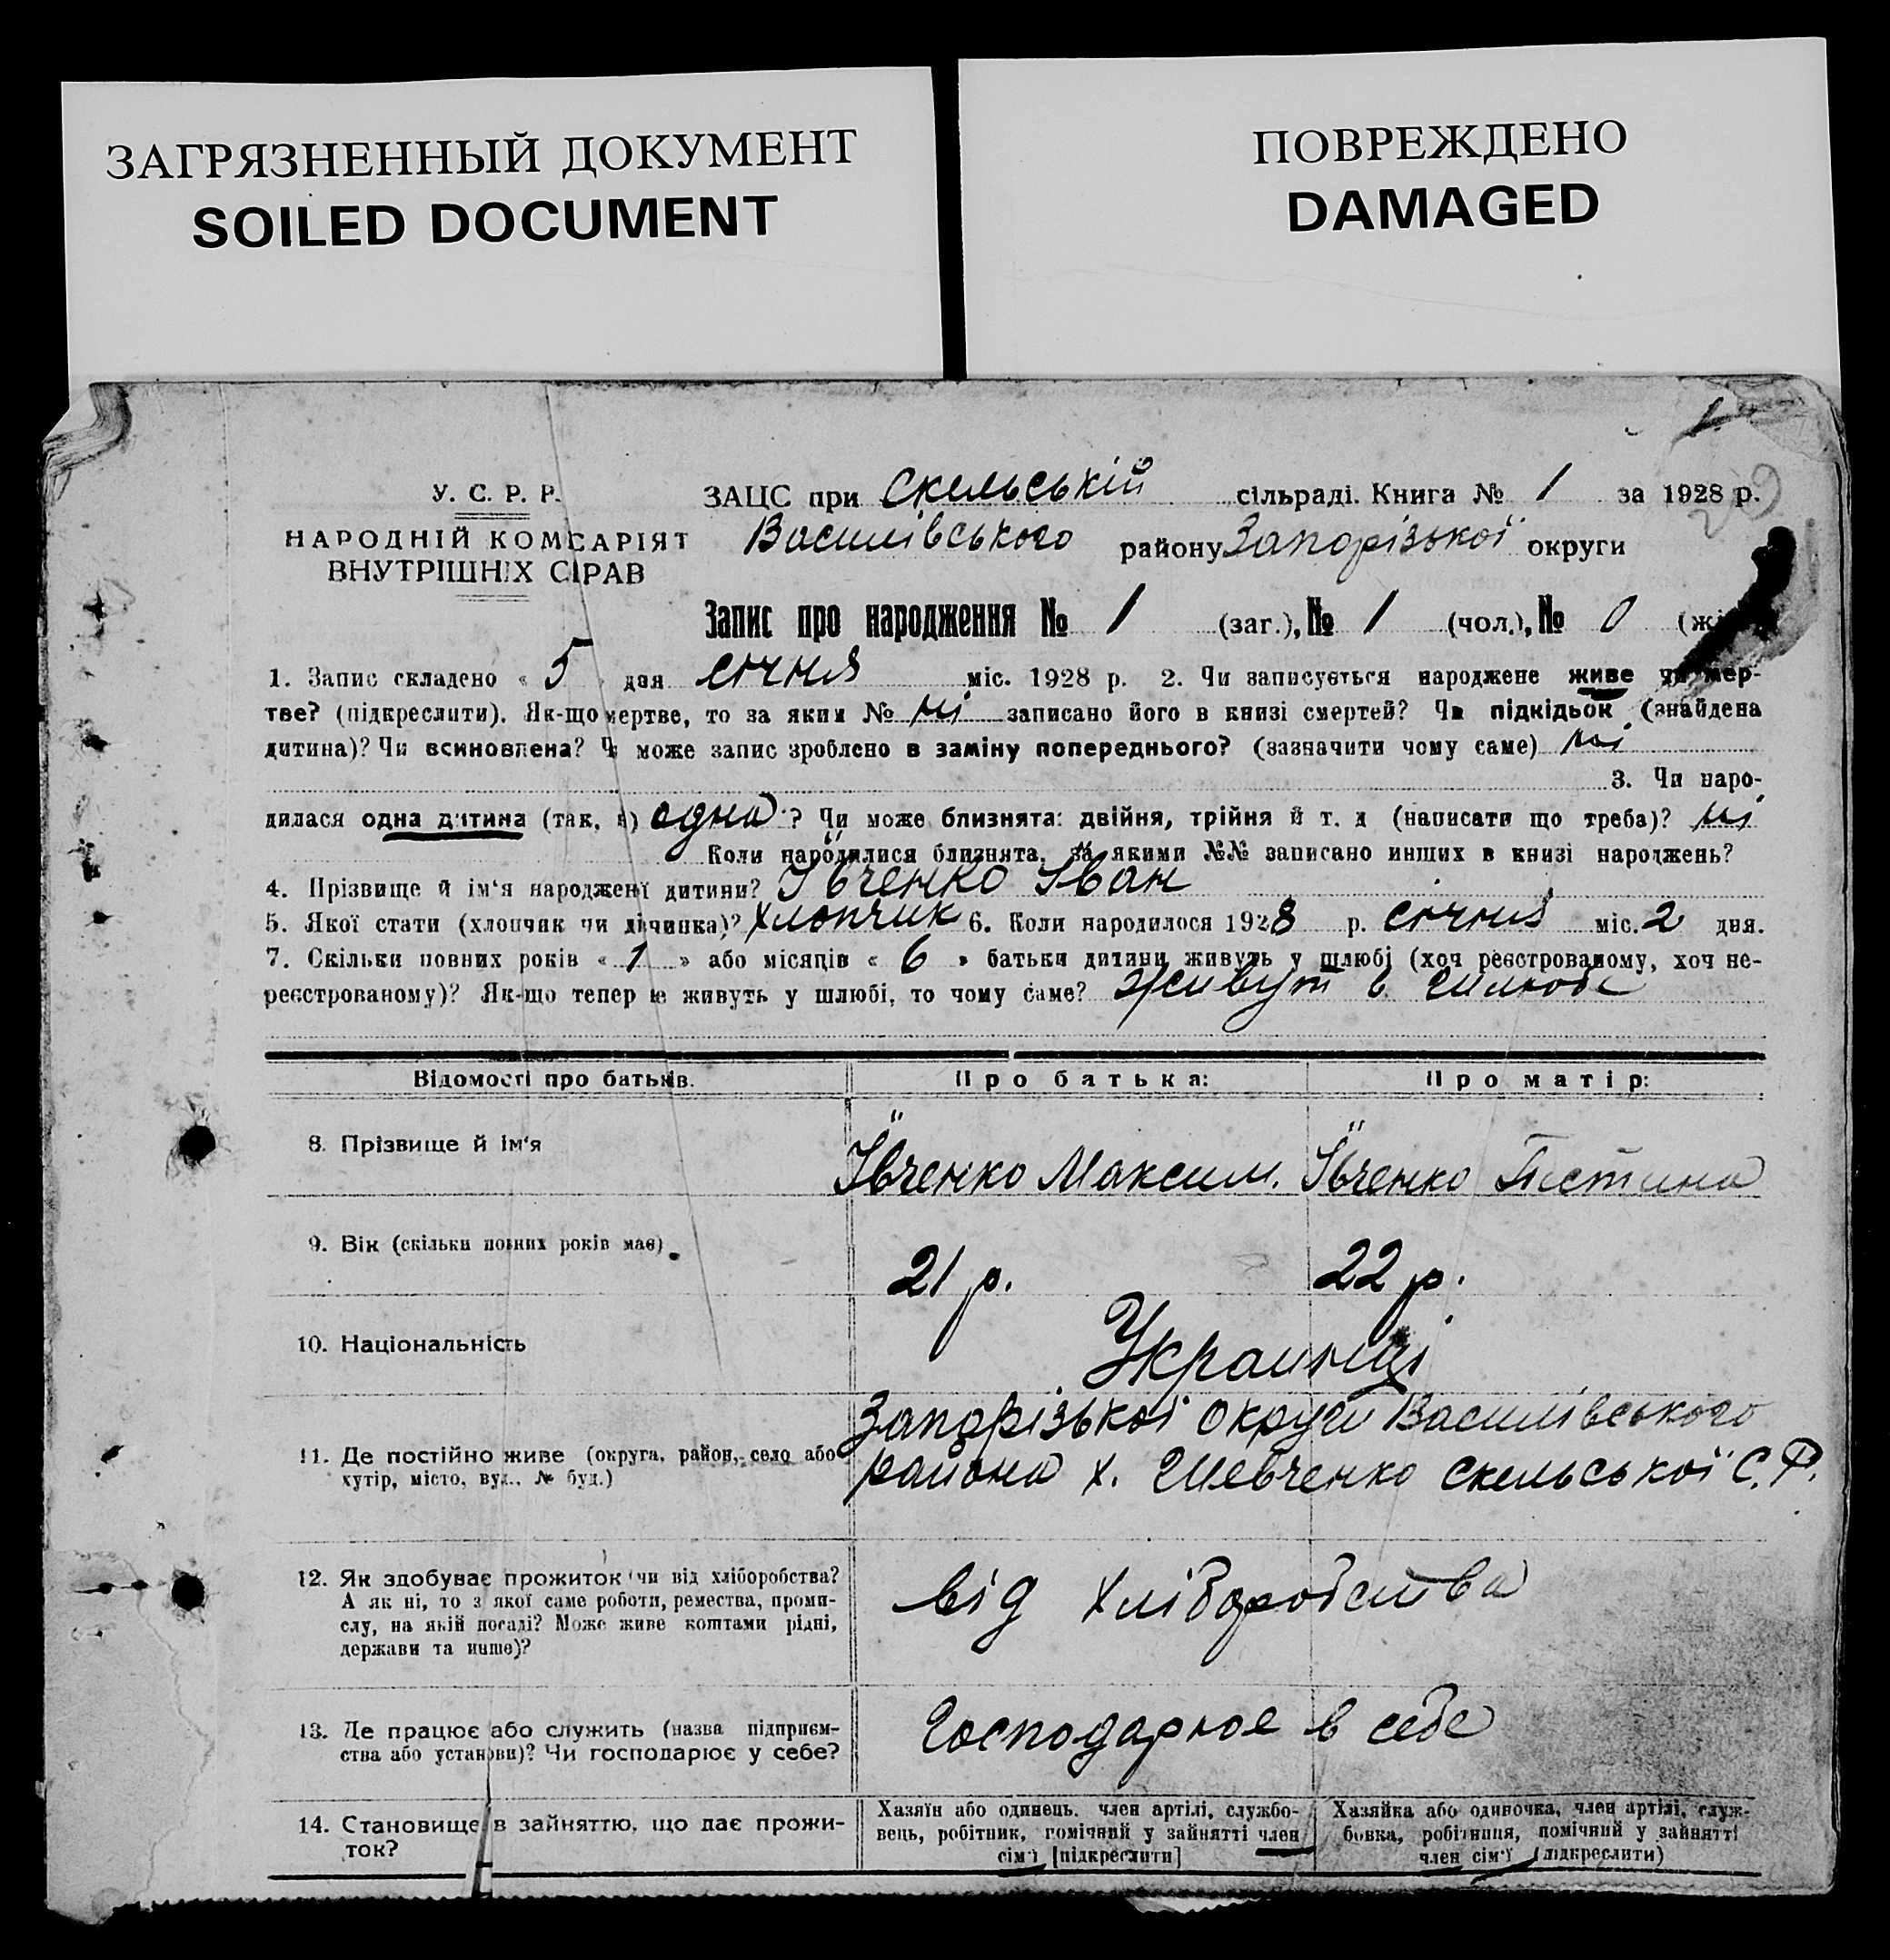 ЗАГРЯЗНЕННЫЙ ДОКУМЕНТ
SOILED DOCUMENT
ПОВРЕЖДЕНО
DAMAGED
У. С. Р. Р.
НАРОДНІЙ КОМІСАРІЯТ
ВНУТРІШНІХ СПРАВ
ЗАЦС при Скельській сільраді. Книга № 1 за 1928 р.
Василівського району Запорізької округи
29
Запис про народження № 1 (заг.), № 1 (чол.), № 0
1. Запис складено « 5 » дня січня міс. 1928 р. 2. Чи записується народжене живе чи мер-
тве? (підкреслити). Як-що мертве, то за яким № ні записано його в книзі смертей? Чи підкідьок (знайдена
дитина)? Чи всиновлена? Чи може запис зроблено в заміну попереднього? (зазначити чому саме) ні
3. Чи наро-
дилася одна дитина (так, ні) одна ? Чи може близнята: двійня, трійня й т. д (написати що треба)? ні
Коли народилися близнята, за якими №№ записано инших в книзі народжень?
4. Прізвище й ім'я народженої дитини? Ївченко Іван
5. Якої стати (хлопчик чи дівчинка)? хлопчик 6. Коли народилося 1928 р. січня міс. 2 дня.
7. Скільки повних років « 1 » або місяців « 6 » батьки дитини живуть у шлюбі (хоч реєстрованому, хоч не-
реєстрованому)? Як-що тепер не живуть у шлюбі, то чому саме? Живут в шлюбе
Відомості про батьків. Про батька: Про матір:
8. Прізвище й ім'я Ївченко Максим. Ївченко Тистина
9. Вік (скільки повних років має) 21 р. 22 р.
10. Національність Украинці
Запорізької округи Василівського
11. Де постійно живе (округа, район, село або
хутір, місто, вул., № буд.) района х. Шевченко Скельської С.Р.
12. Як здобуває прожиток чи від хліборобства? від хліборобства
А як ні, то з якої саме роботи, ремества, проми-
слу, на якій посаді? Може живе коштами рідні,
держави та инше)?
13. Де працює або служить (назва підприєм- Господарює в себе
ства або установи)? Чи господарює у себе?
14. Становище в зайняттю, що дає прожи-
ток?
Хазяїн або одинець, член артілі, службо-
вець, робітник, помічний у зайнятті член
сім'ї [підкреслити]
Хазяйка або одиночка, член артілі, служ-
бовка, робітниця, помічний у зайнятті
член сім'ї (підкреслити)